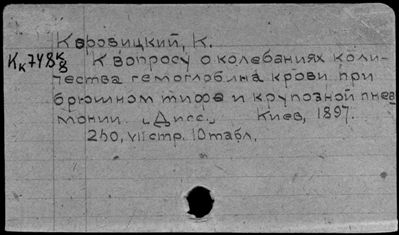 Коровицкий, К.
Кк748 К/8 К вопросу о колебаниях коли-
чества гемоглобина крови при
брюшном тифе и крупозной пнев
монии. „Дисс." Киев, 1897.
260, VII стр. 10 табл.